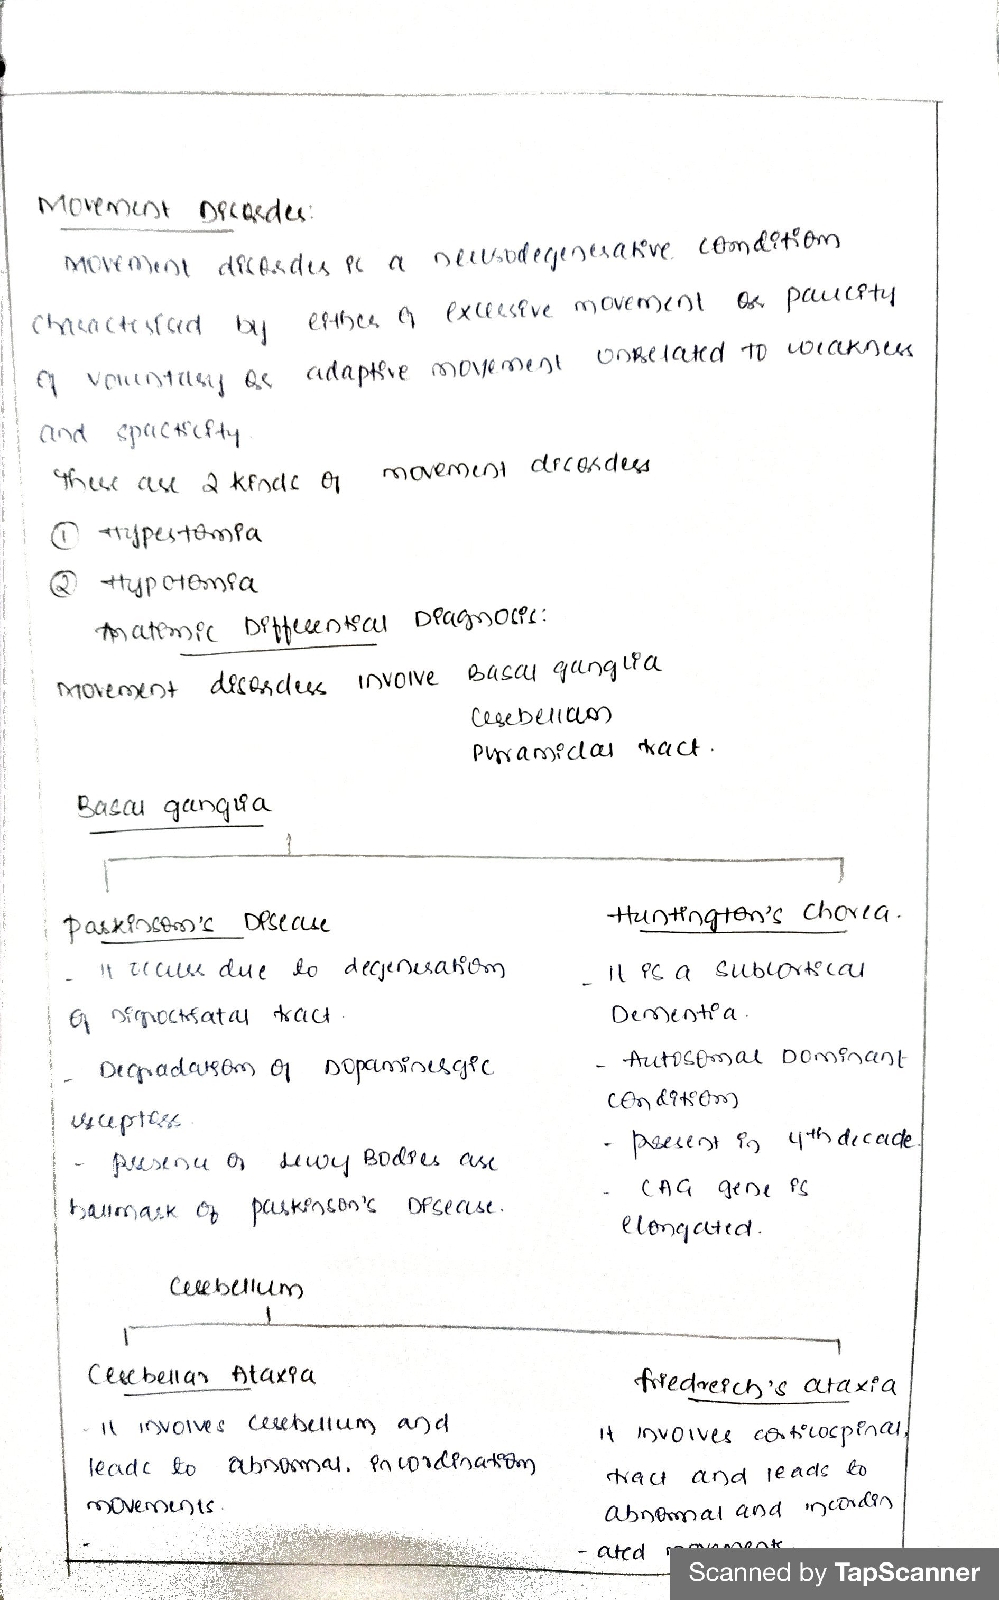 Movement Disorder:
Movement disorder is a neurodegenerative condition
characterised by either of excessive movement or paucity
of voluntary or adaptive movement unrelated to weakness
and spasticity.
There are 2 kinds of movement disorders
① Hypertonia
② Hypotonia
Anatomic Differential Diagnosis:
Movement disorders involve Basal ganglia
Cerebellum
Pyramidal tract.
Basal ganglia
Parkinson's Disease
- It occurs due to degeneration
of nigrostriatal tract.
- Degradation of Dopaminergic
receptors.
- Presence of Lewy Bodies are
hallmark of parkinson's Disease.
Huntington's Chorea.
- It is a subcortical
Dementia.
- Autosomal Dominant
condition
- Present in 4th decade.
- CAG gene is
elongated.
Cerebellum
Cerebellar Ataxia
- It involves cerebellum and
leads to abnormal. incordination
movements.
-
friedreich's ataxia
It involves corticospinal
tract and leads to
abnormal and incordin
- ated movements
Scanned by TapScanner